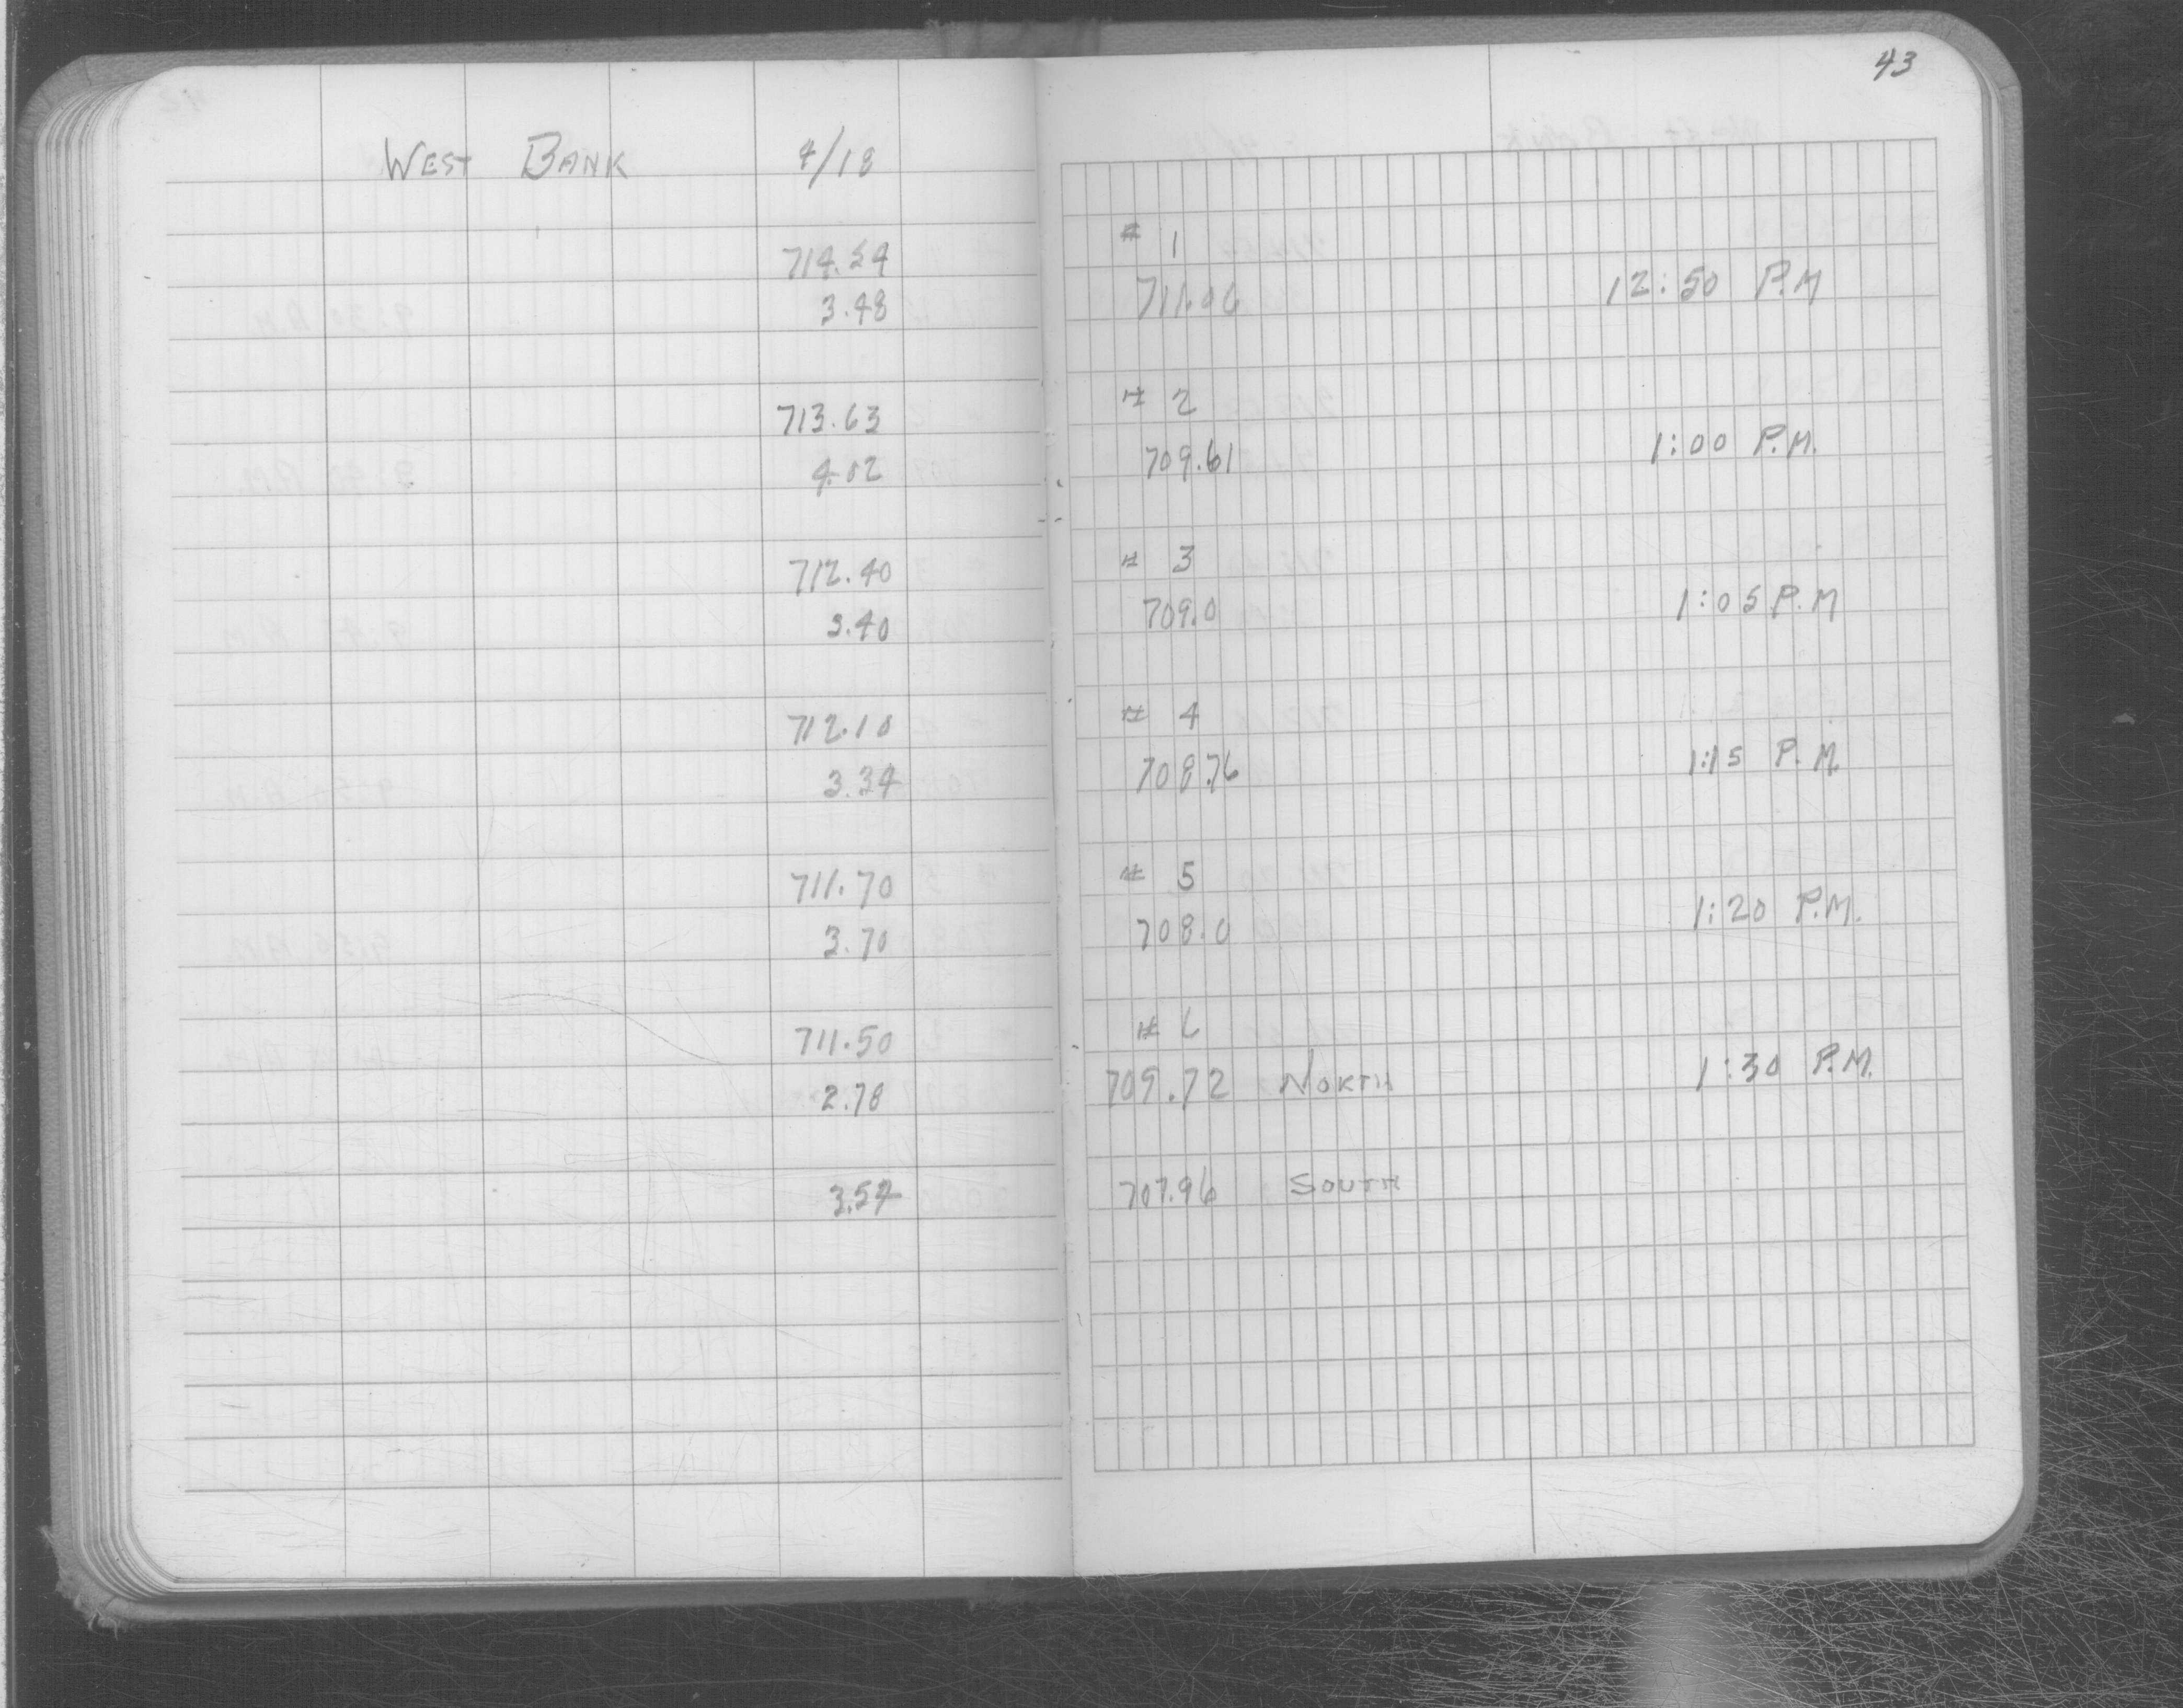 43
WEST BANK 4/18
# 1
714.54
3.48 711.06 12:50 P.M
# 2
713.63
4.02 709.61 1:00 P.M.
# 3
712.40
3.40 709.0 1:05 P.M
# 4
712.10
3.34 708.76 1:15 P.M
# 5
711.70
3.70 708.0 1:20 P.M.
# 6
711.50
2.78 709.72 NORTH 1:30 P.M.
3.54 707.96 SOUTH